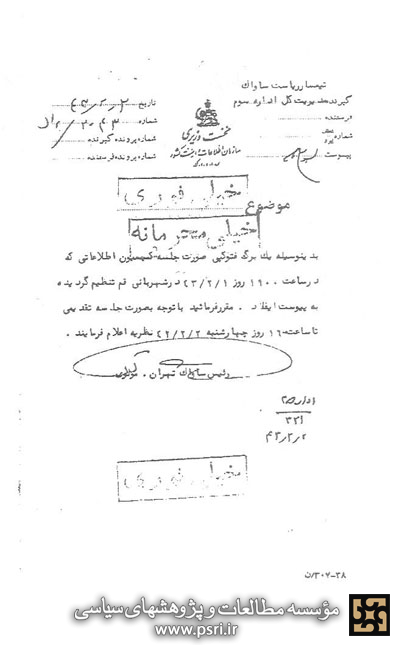 تیمسار ریاست ساواک
گیرنده مدیریت کل اداره سوم
فرستنده
شماره
پیوست
نخست وزیری
سازمان اطلاعات و امنیت کشور
س.ا.و.ا.ک
تاریخ
شماره
شماره پرونده گیرنده
شماره پرونده فرستنده
خیلی فوری
موضوع
خیلی محرمانه
بدینوسیله یک برگ فتوکپی صورت جلسه کمیسیون اطلاعاتی که
در ساعت ۱۹۰۰ روز ۴۳/۲/۱ در شهربانی قم تنظیم گردیده
به پیوست ایفاد . مقرر فرمائید با توجه بصورت جلسه تقدیمی
تا ساعت ۱۶ روز چهارشنبه ۴۳/۲/۲ نظریه اعلام فرمایند .
رئیس ساواک تهران . مولوی
۳۲۱
۴۳/۲/۲
خیلی فوری
۳۰۷-۳۸/ن
مؤسسه مطالعات و پژوهشهای سیاسی
www.psri.ir